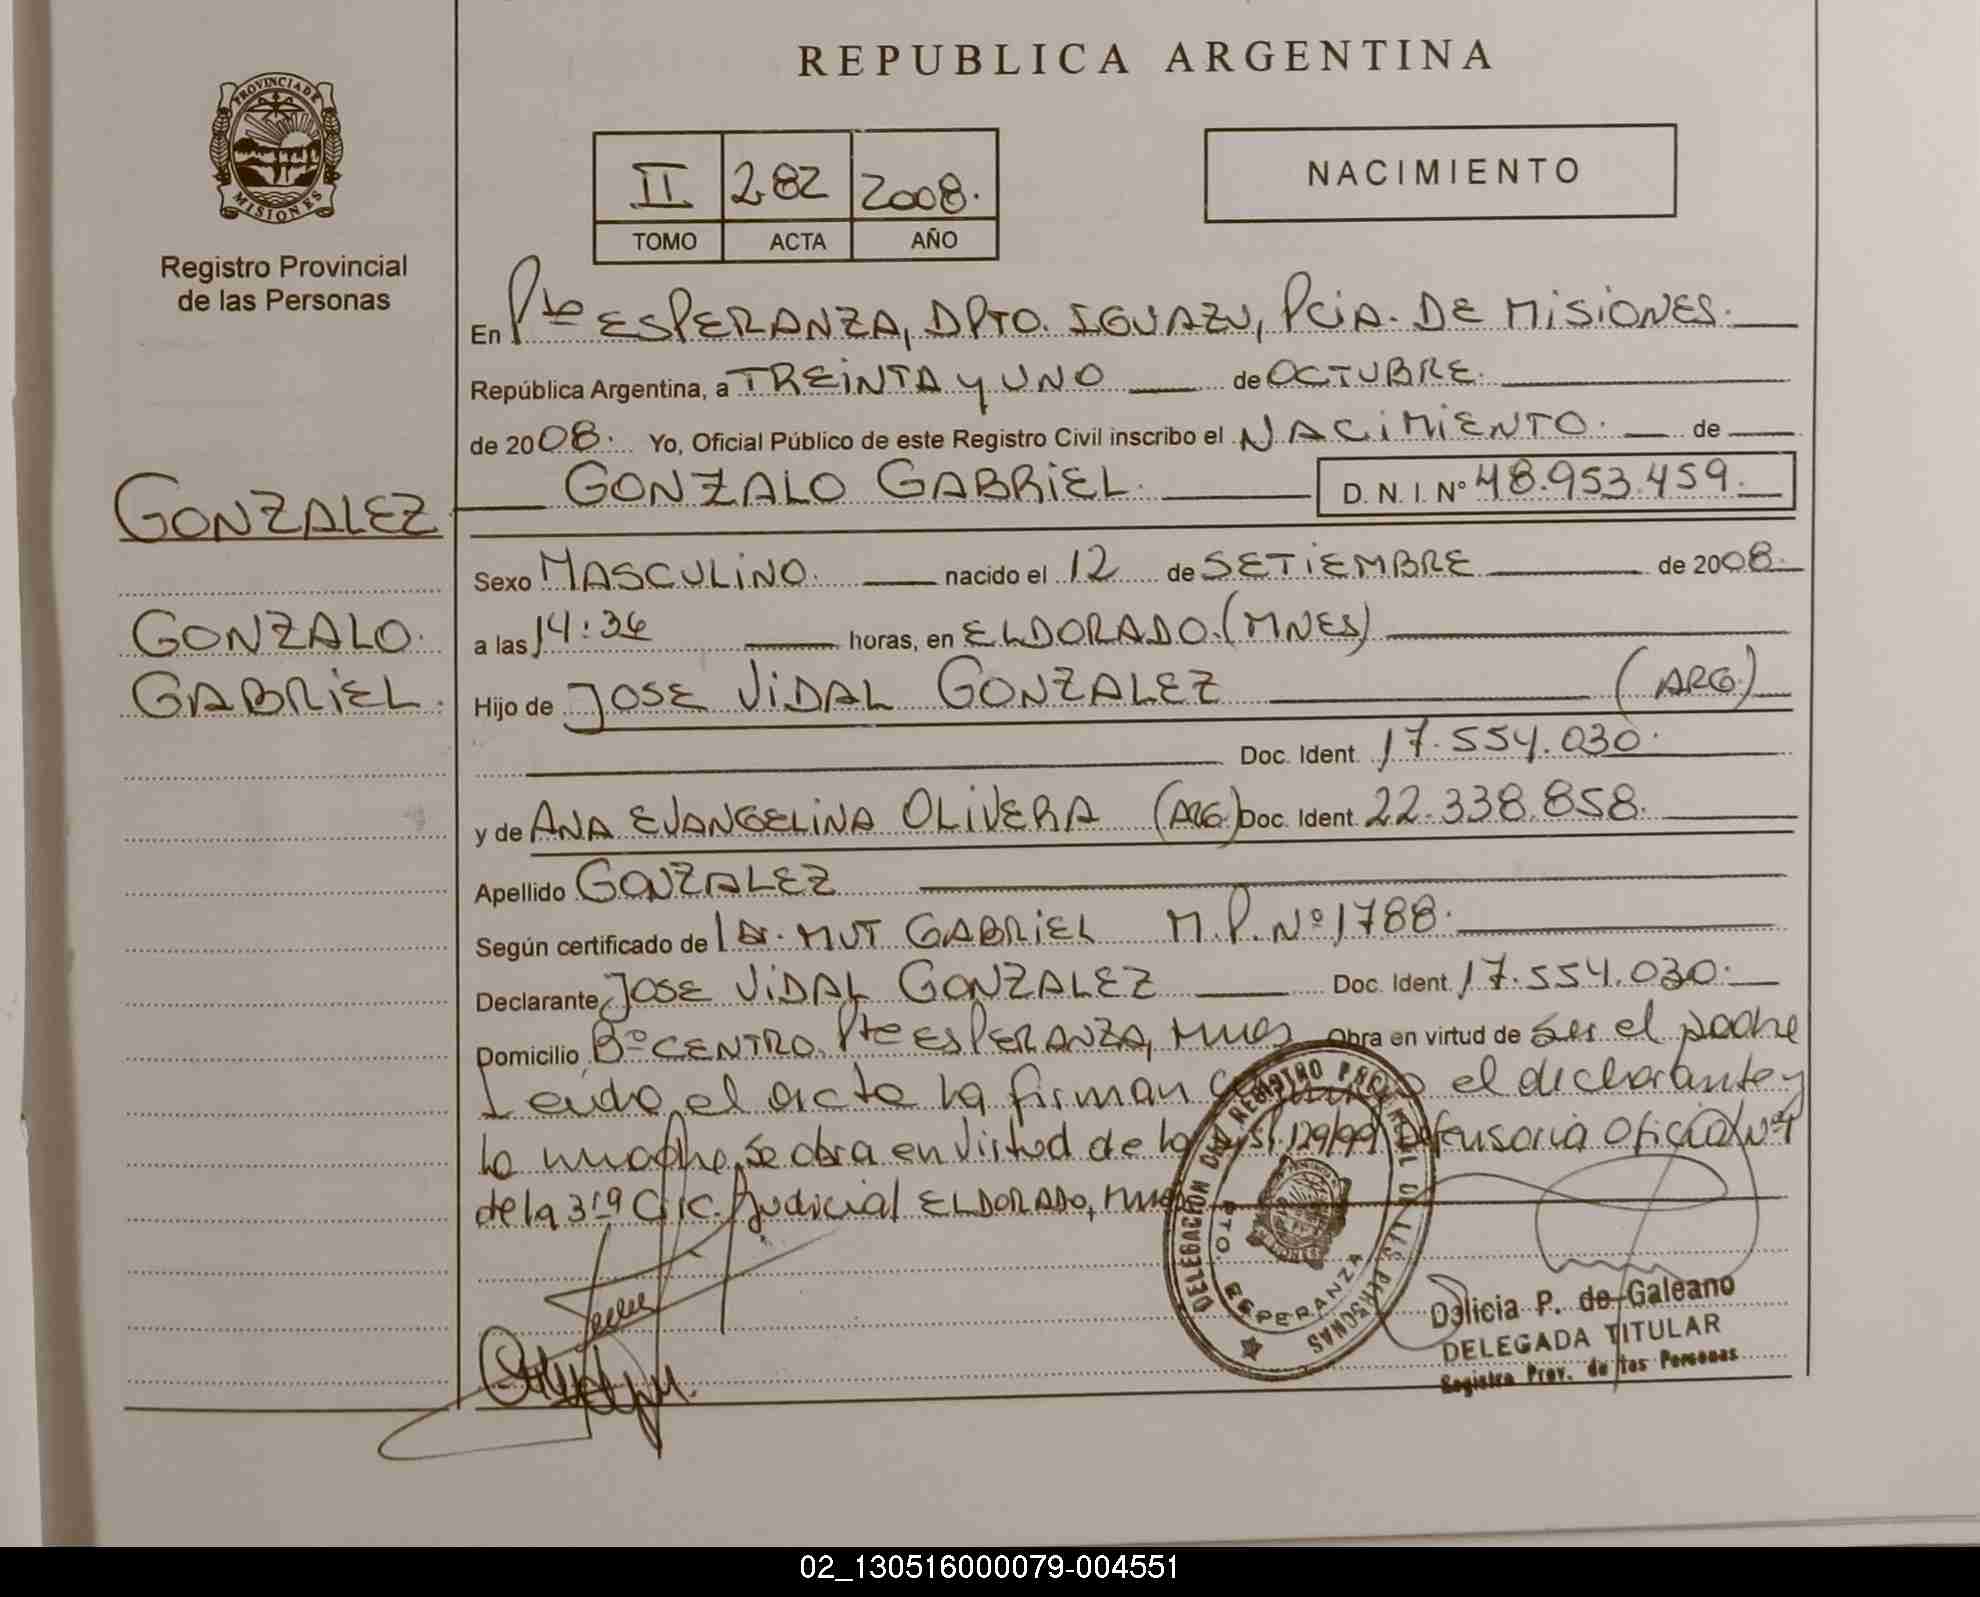 REPUBLICA ARGENTINA
PROVINCIA DE MISIONES
Registro Provincial
de las Personas
II 282 2008.
TOMO ACTA AÑO
NACIMIENTO
En Pto ESPERANZA, DPTO. IGUAZU, PCIA. DE MISIONES.
República Argentina, a TREINTA y UNO de OCTUBRE.
de 2008. Yo, Oficial Público de este Registro Civil inscribo el NACIMIENTO. de
GONZALO GABRIEL. D. N. I. Nº 48.953.459.
GONZALEZ
GONZALO.
GABRIEL.
Sexo MASCULINO. nacido el 12 de SETIEMBRE de 2008.
a las 14:36 horas, en ELDORADO. (MNES)
Hijo de JOSE VIDAL GONZALEZ (ARG.)
Doc. Ident. 17.554.030.
y de ANA EVANGELINA OLIVERA (ARG.) Doc. Ident. 22.338.858.
Apellido GONZALEZ
Según certificado de Dr. MUT GABRIEL M.P. Nº 1788.
Declarante JOSE VIDAL GONZALEZ Doc. Ident. 17.554.030.
Domicilio Bº CENTRO. Pto ESPERANZA, Mnes Obra en virtud de ser el padre
Leido el acta la firman el declarante y
la madre, se obra en virtud de la 129/99 Defensoria Oficial Nº 1
de la 3ra Circ. Judicial ELDORADO, Mnes
DELEGACIÓN DEL REGISTRO PROVINCIAL DE LAS PERSONAS
PTO. ESPERANZA
Dalicia P. de Galeano
DELEGADA TITULAR
Registro Prov. de las Personas
02_130516000079-004551